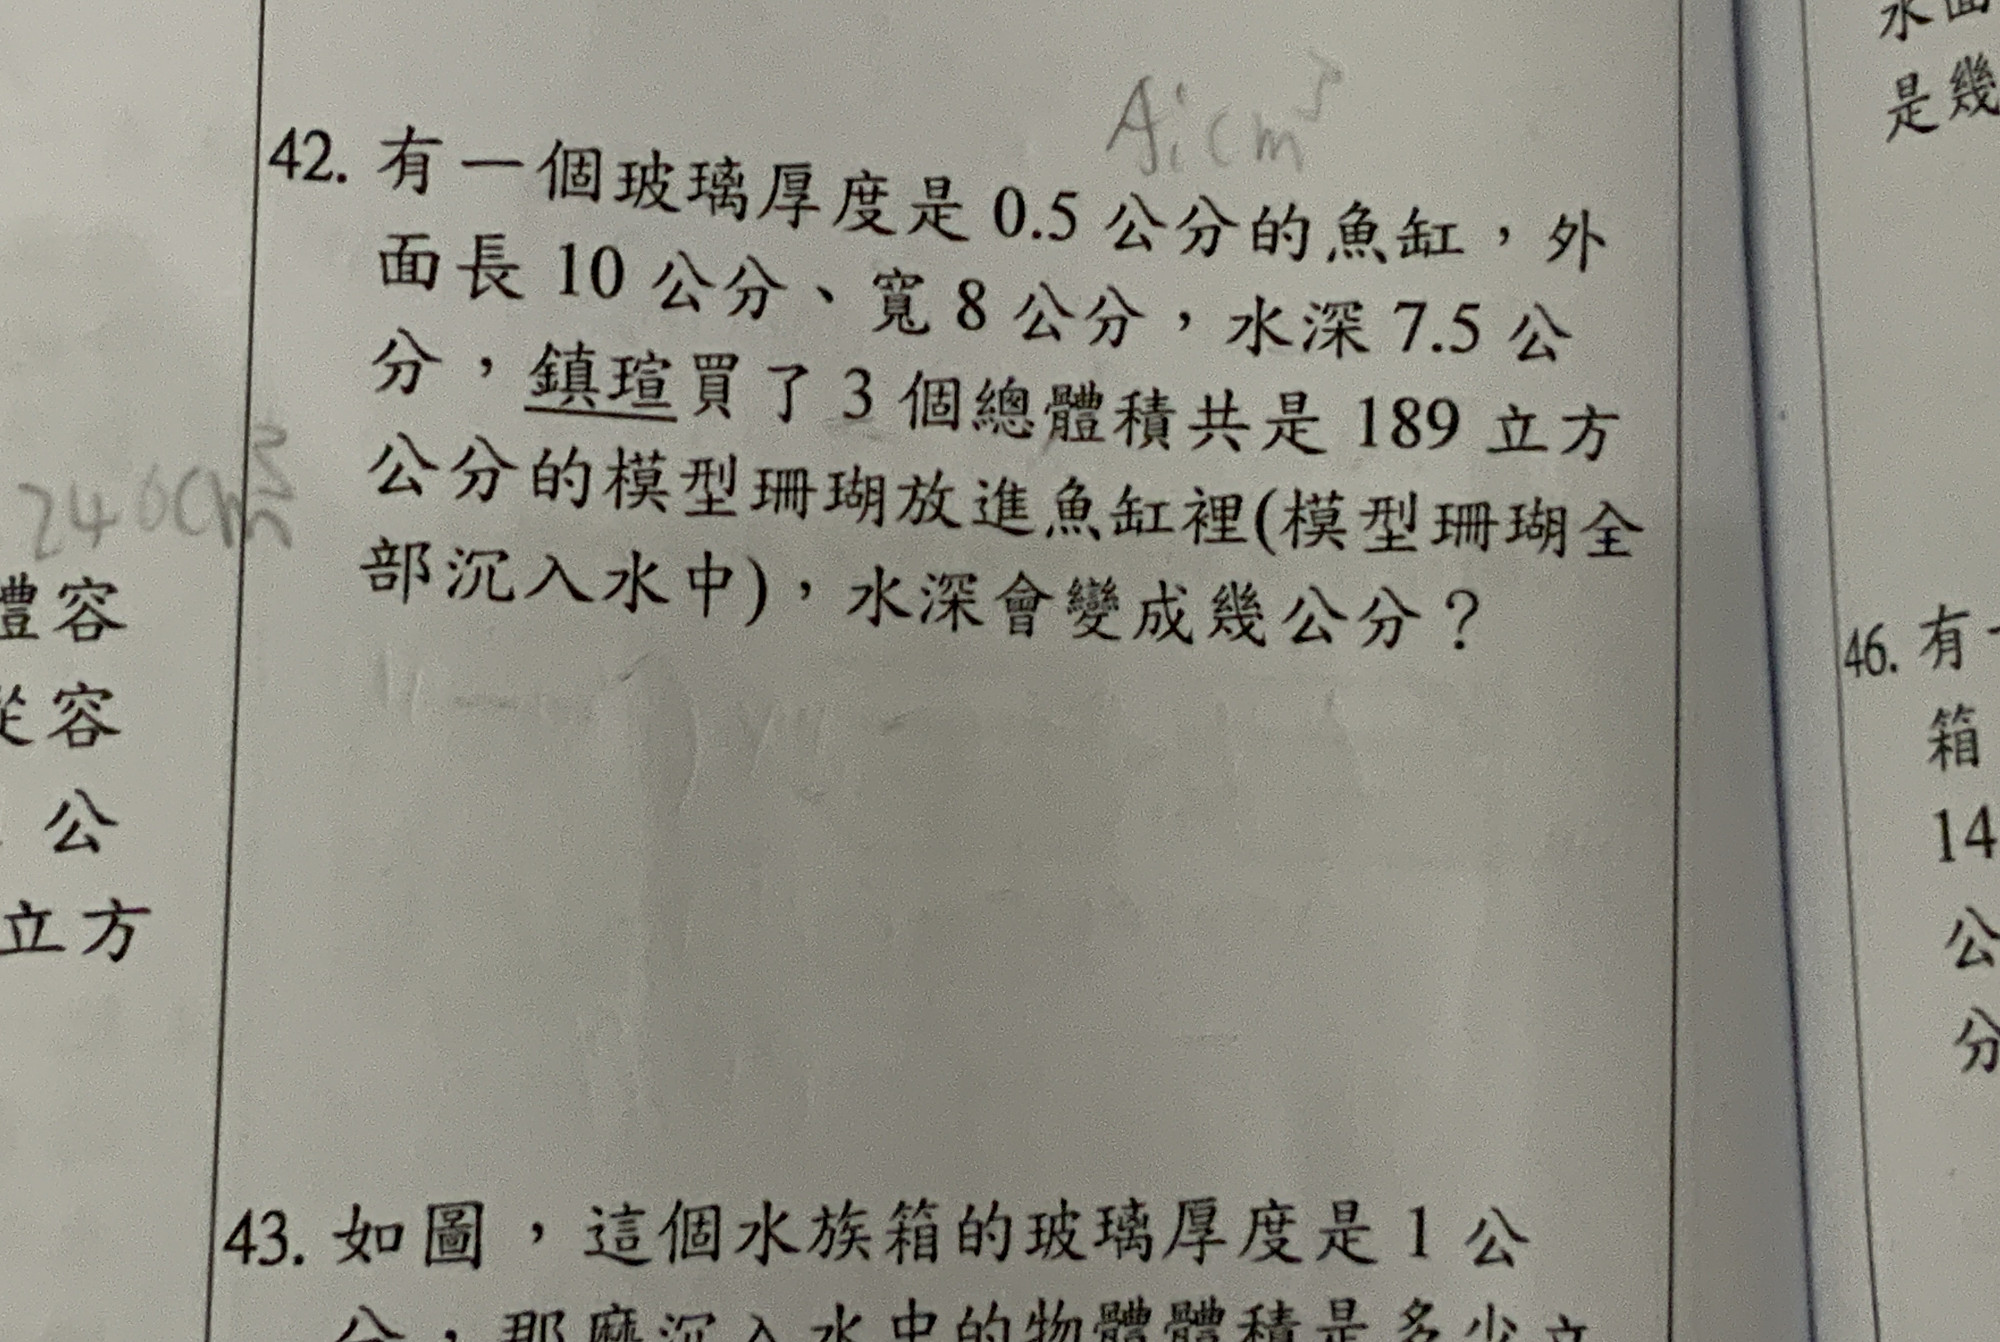 水面
是幾
Aicm³
42. 有一個玻璃厚度是 0.5 公分的魚缸，外
面長 10 公分、寬 8 公分，水深 7.5 公
分，鎮瑄買了 3 個總體積共是 189 立方
公分的模型珊瑚放進魚缸裡(模型珊瑚全
部沉入水中)，水深會變成幾公分？
240cm³
體容
從容
公
立方
46. 有一
箱
14
公
分
43. 如圖，這個水族箱的玻璃厚度是 1 公
分，那麼沉入水中的物體體積是多少立